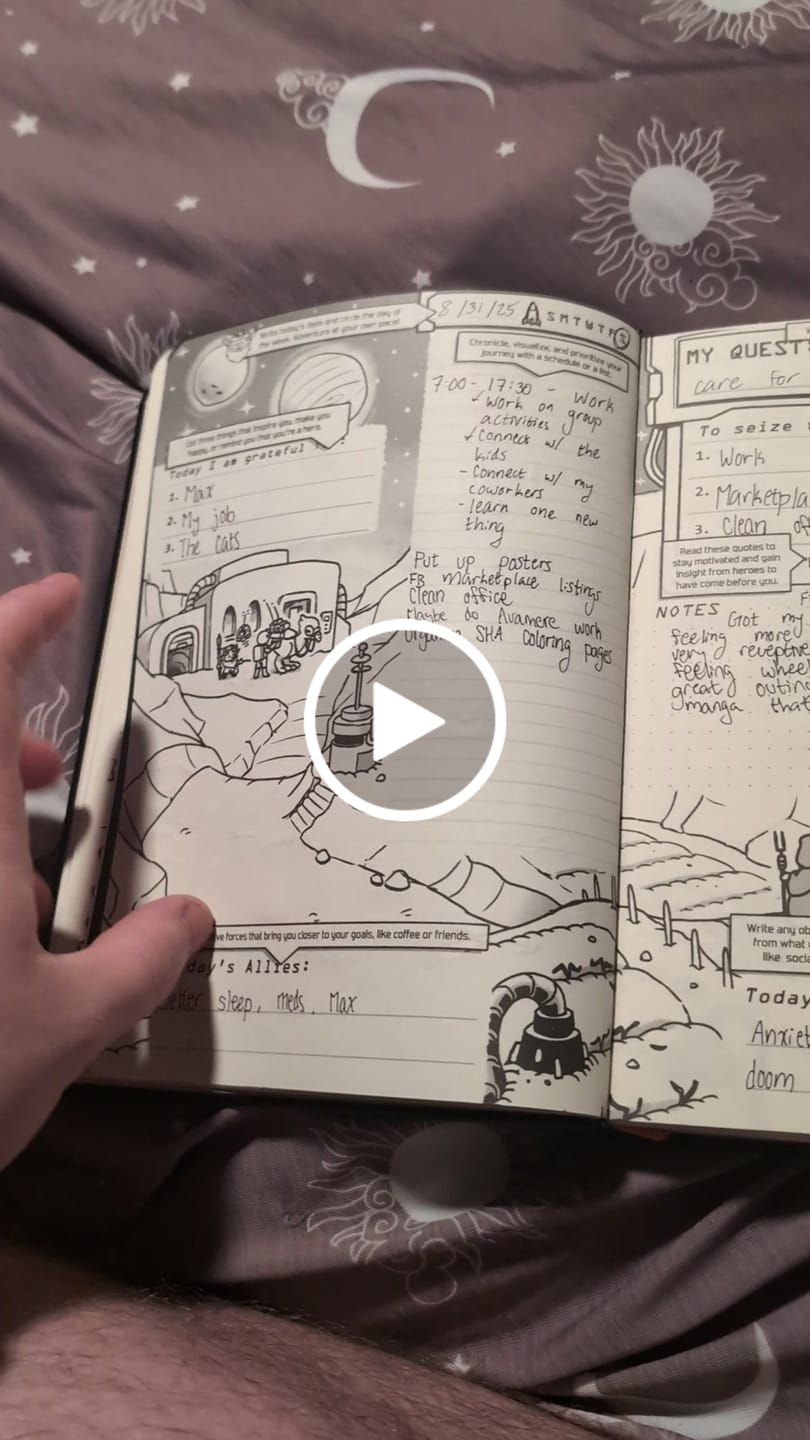 Write today's date and circle the day of
the week. Adventure at your own pace!
8/31/25 S M T W T F S
Chronicle, visualize, and prioritize your
journey with a schedule or a list.
List three things that inspire you, make you
happy, or remind you that you're a hero.
Today I am grateful
1. Max
2. My job
3. The cats
7:00 - 17:30 - Work
✓ Work on group
activities
✓ Connect w/ the
kids
- Connect w/ my
coworkers
- learn one new
thing
Put up posters
FB Marketplace listings
Clean office
Maybe do Avamere work
SHA coloring pages
ve forces that bring you closer to your goals, like coffee or friends.
day's Allies:
sleep, meds, Max
MY QUEST
care for
To seize
1. Work
2. Marketpla
3. Clean of
Read these quotes to
stay motivated and gain
insight from heroes to
have come before you.
NOTES
Got my
feeling more
very receptive
feeling whee
great outin
manga that
Write any ob
from what
like socia
Today
Anxiet
doom